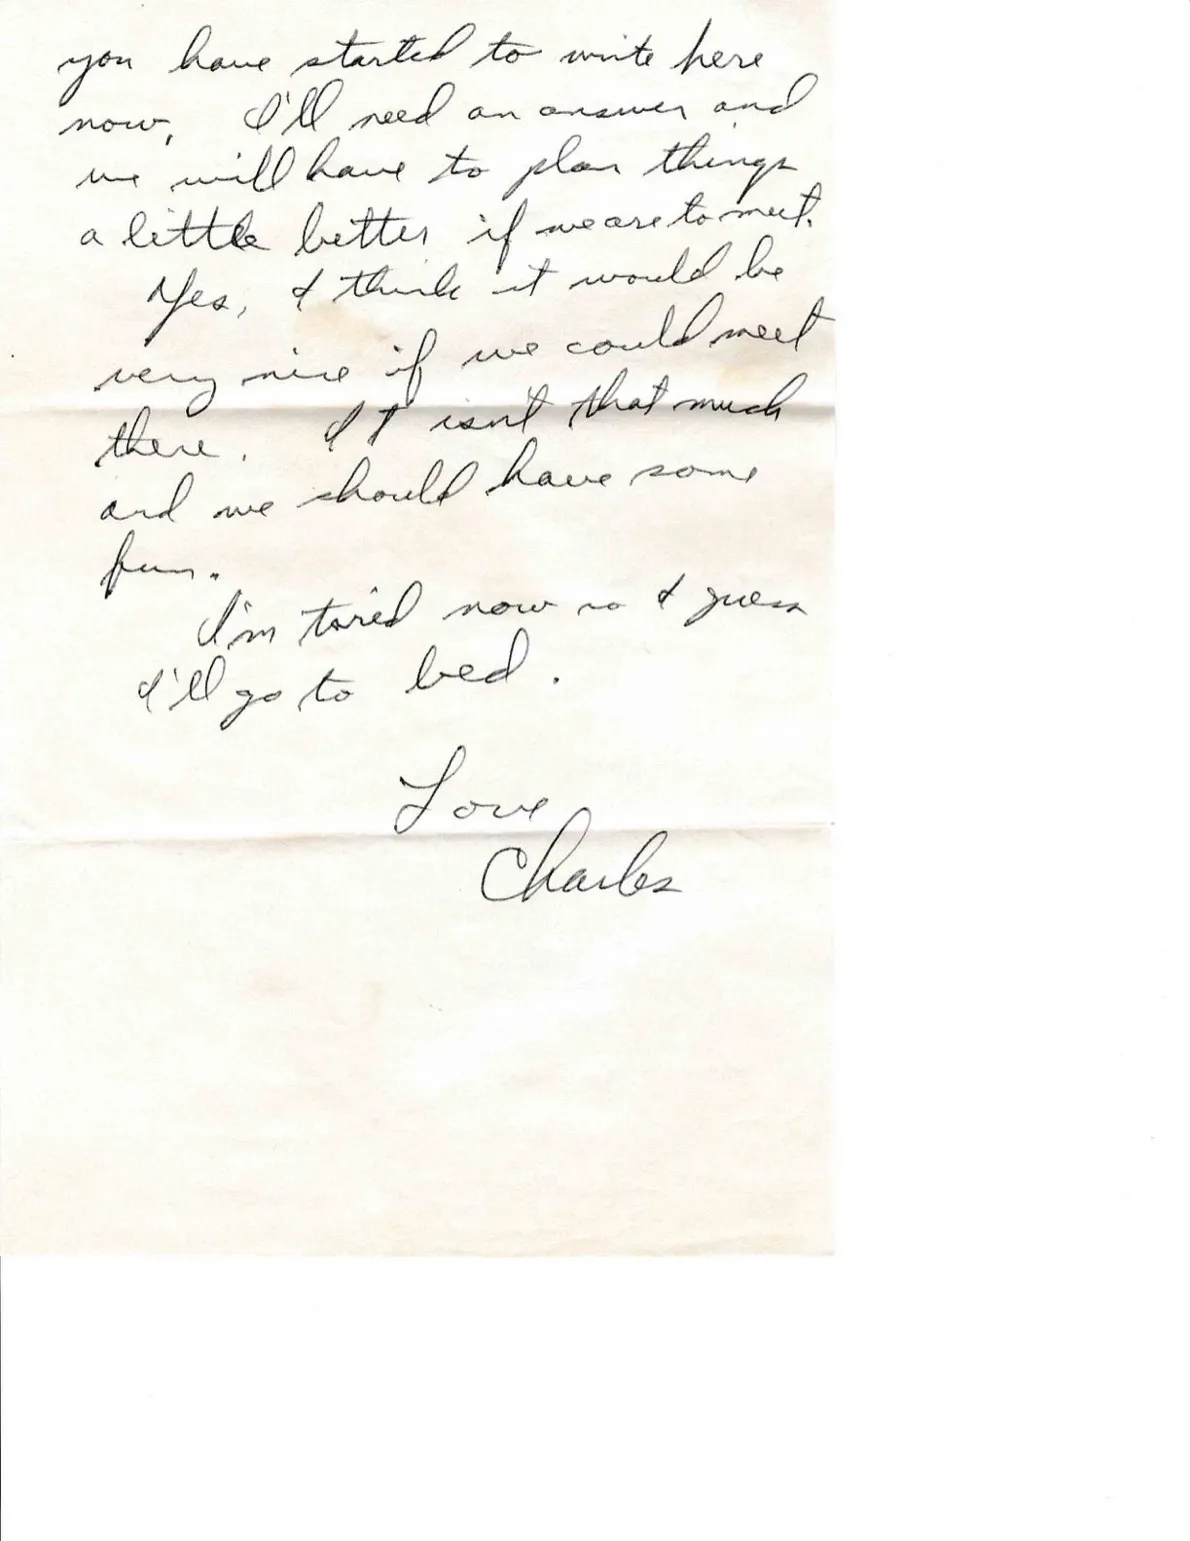 you have started to write here
now, I'll need an answer and
we will have to plan things
a little better if we are to meet.
Yes, I think it would be
very nice if we could meet
there. It isn't that much
and we should have some
fun.
I'm tired now so I guess
I'll go to bed.
Love
Charles